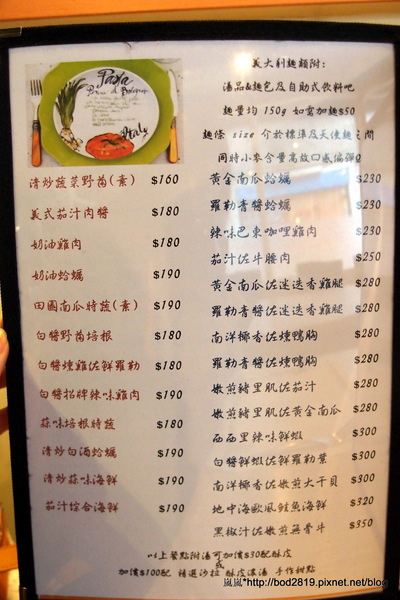 Pasta
Italy
義大利麵類附:
湯品&麵包及自助式飲料吧
麵量均 150g 如需加麵$50
麵條 size 介於標準及天使麵之間
同時小麥含量高故口感偏彈Q
清炒蔬菜野菌(素) $160
義式茄汁肉醬 $180
奶油雞肉 $180
奶油蛤蠣 $190
田園南瓜時蔬(素) $190
白醬野菌培根 $180
白醬燻雞佐鮮羅勒 $180
白醬招牌辣味雞肉 $190
蒜味培根時蔬 $180
清炒白酒蛤蠣 $190
清炒蒜味海鮮 $190
茄汁綜合海鮮 $190
黃金南瓜蛤蠣 $230
羅勒青醬蛤蠣 $230
辣味巴東咖哩雞肉 $230
茄汁佐牛腰肉 $250
黃金南瓜佐迷迭香雞腿 $280
羅勒青醬佐迷迭香雞腿 $280
南洋椰香佐燻鴨胸 $280
羅勒青醬佐燻鴨胸 $280
嫩煎豬里肌佐茄汁 $280
嫩煎豬里肌佐黃金南瓜 $280
西西里辣味鮮蝦 $300
白醬鮮蝦佐鮮羅勒葉 $300
南洋椰香佐嫩煎大干貝 $300
地中海歐風鮭魚海鮮 $320
黑椒汁佐嫩煎無骨牛 $350
以上餐點附湯可加價$30配酥皮
或
加價$100配 精選沙拉 酥皮濃湯 手作甜點
嵐嵐*http://bod2819.pixnet.net/blog